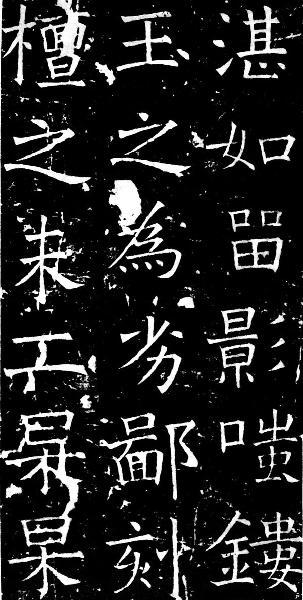 湛如留影嗤鏤
玉之為劣鄙刻
檀之未工杲杲